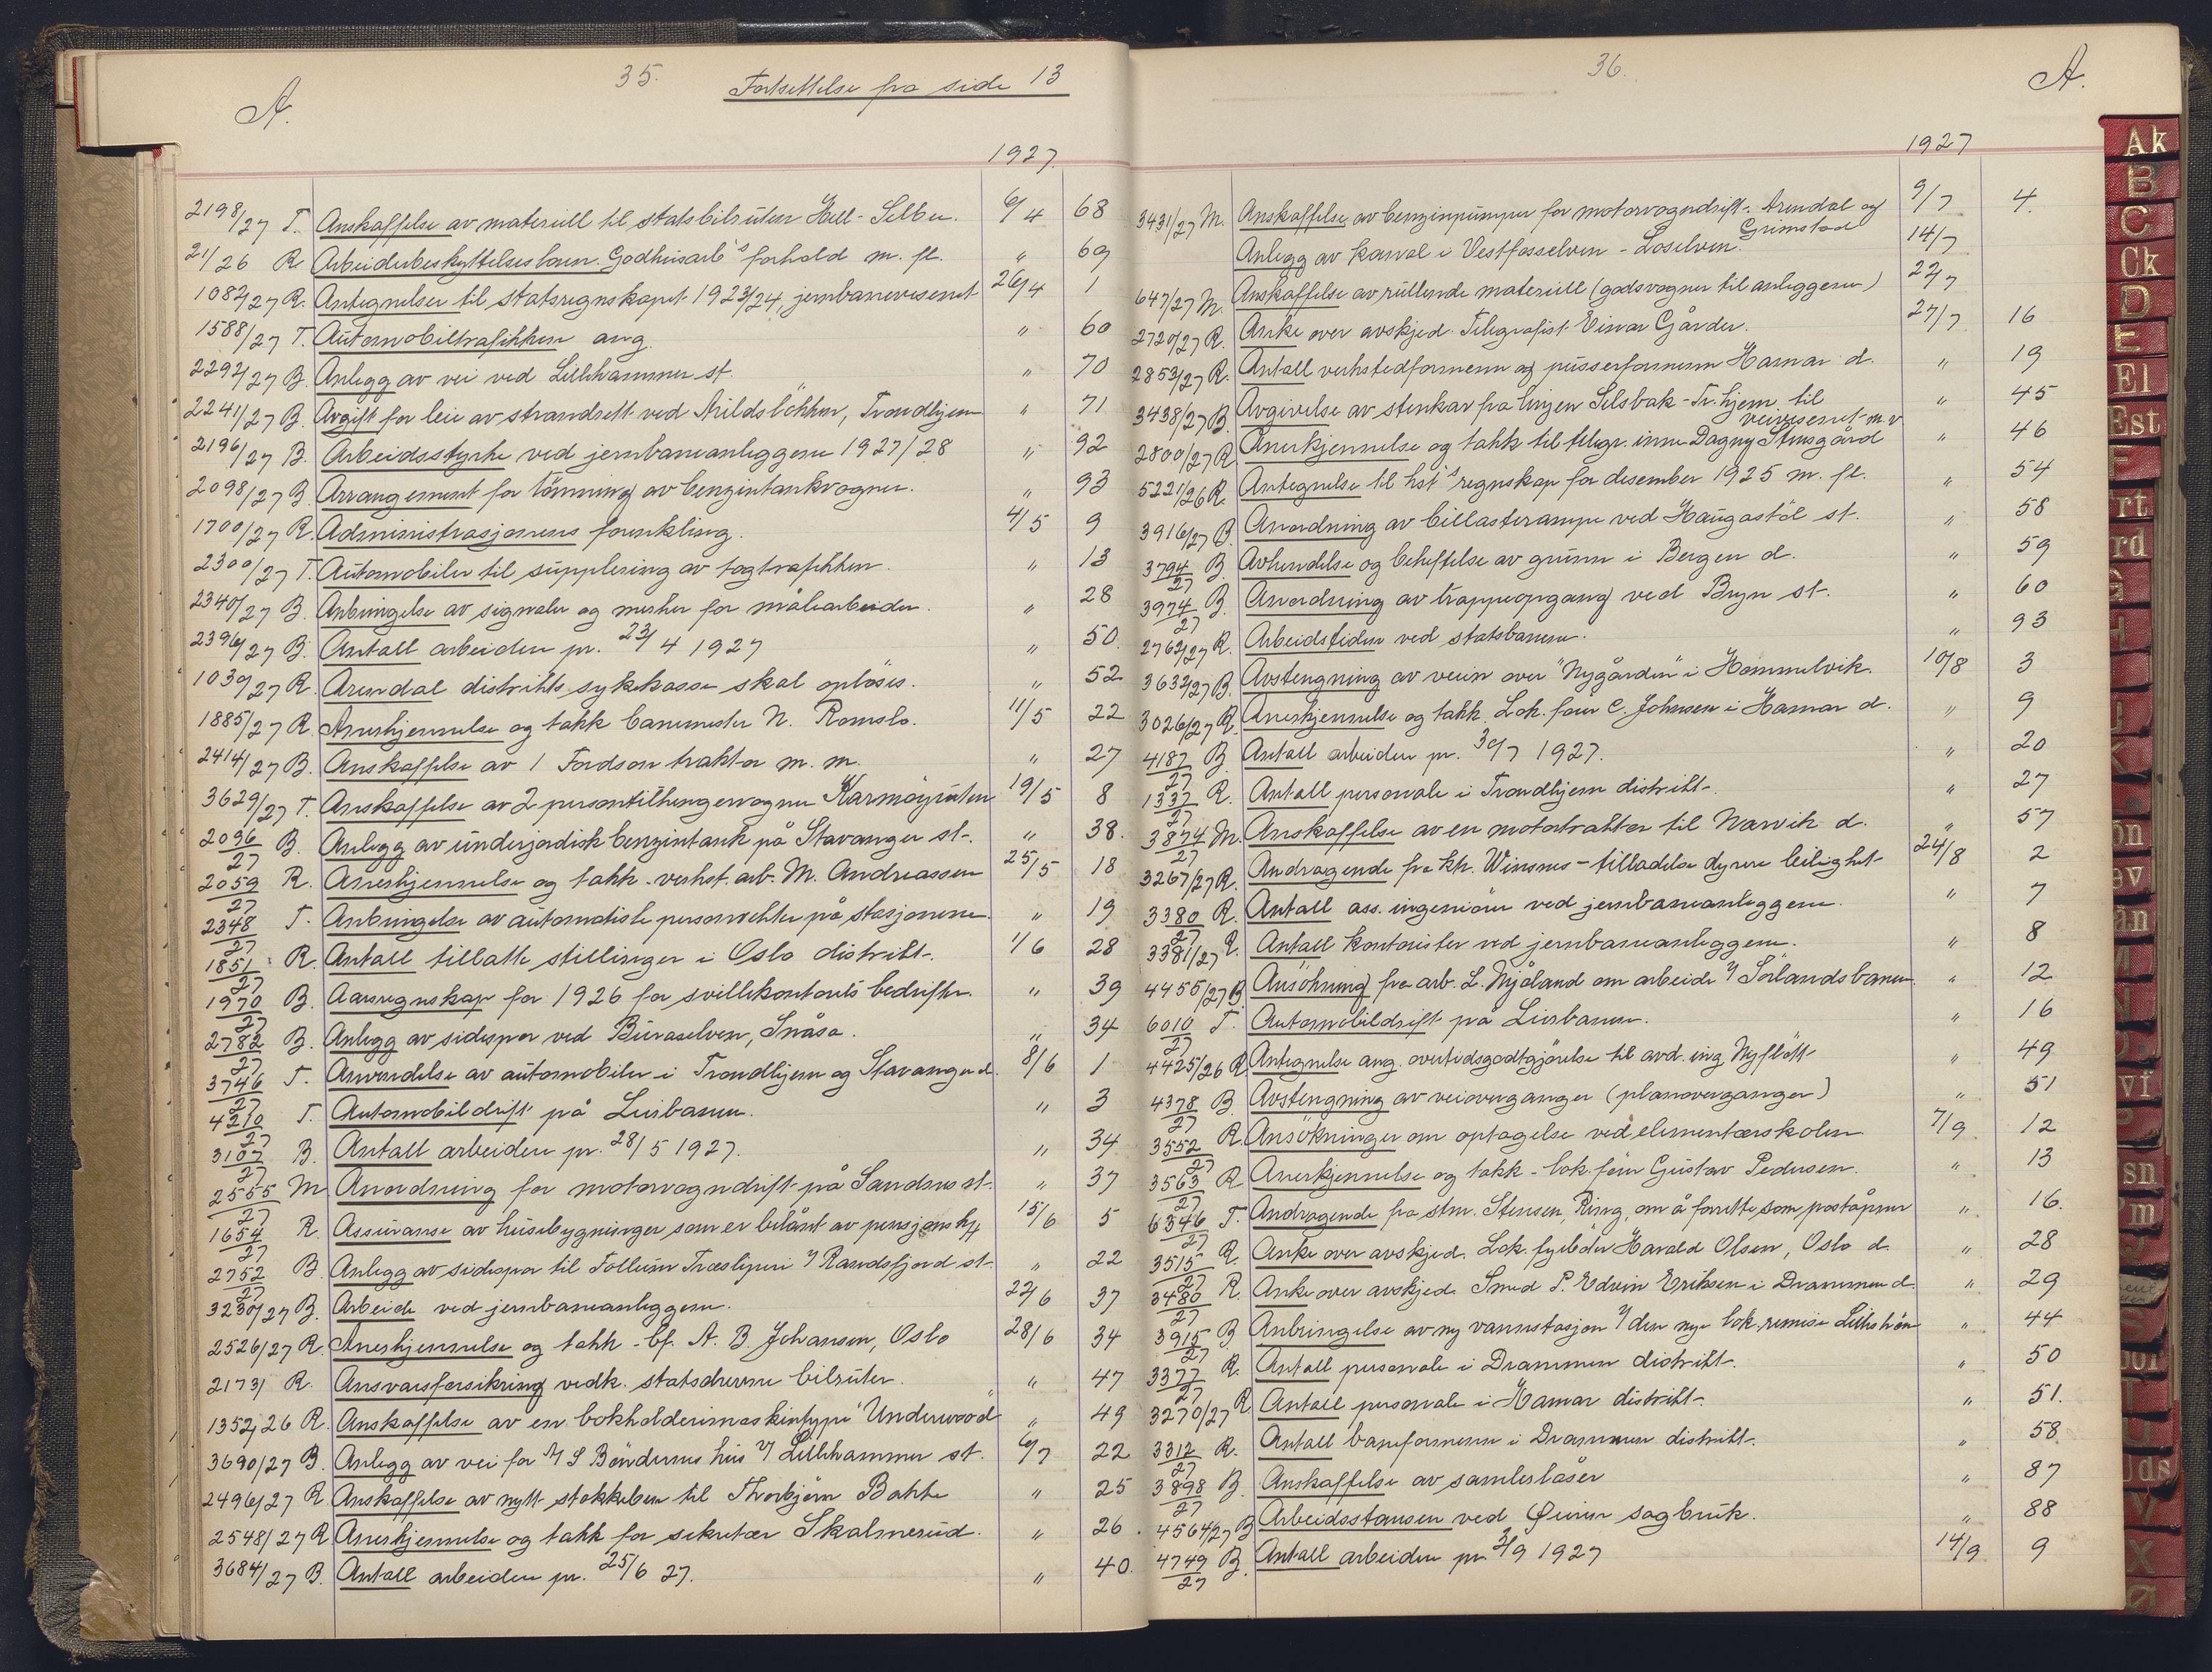 35.
Fortsettelse fra side 13
A.
1927.
2198/27 T. Anskaffelse av materiell til statsbilruten Hell - Selbu. 6/4 68
21/26 R. Arbeiderbeskyttelsesloven. Godhusarb's forhold m. fl. " 69
1082/27 R. Antegnelser til statsregnskapet 1923/24, jernbanevesenet 26/4 1
1588/27 T. Automobiltrafikken ang. " 60
2292/27 B. Anlegg av vei ved Lillehammer st. " 70
2241/27 B. Avgift for leie av strandrett ved Nildsløkken, Trondhjem " 71
2196/27 B. Arbeidsstyrke ved jernbaneanleggene 1927/28 " 92
2098/27 B. Arrangement for tömming av benzintankvogner. " 93
1700/27 R. Administrasjonens forenkling. 4/5 9
2300/27 T. Automobiler til supplering av togtrafikken. " 13
2340/27 B. Anbringelse av signaler og merker for målearbeider. " 28
2396/27 B. Antall arbeidere pr. 23/4 1927 " 50.
1030/27 R. Arendal distrikts sykekasse skal opløses. " 52
1885/27 R. Anerkjennelse og takk banemester N. Romslo. 11/5 22
2414/27 B. Anskaffelse av 1 Fordson traktor m. m. " 27
3629/27 T. Anskaffelse av 2 persontilhengervogner Karmøyruten 19/5 8
2036/27 B. Anlegg av underjordisk benzintank på Stavanger st. " 38.
2059/27 R. Anerkjennelse og takk - verkst. arb. M. Andreassen 25/5 18
2348/27 T. Anbringelse av automatiske personvekter på stasjonene. " 19
1851/27 R. Antall tillatte stillinger i Oslo distrikt. 1/6 28
1970/27 B. Aarsregnskap for 1926 for svillekontorets bedrifter. " 39
2782/27 B. Anlegg av sidespor ved Buraselven, Snåsa. " 34
3746/27 T. Anvendelse av automobiler i Trondhjem og Stavanger d. 8/6 1
4210/27 T. Automobildrift på Lierbanen. " 3
3107/27 B. Antall arbeidere pr. 28/5 1927. " 34
2555/27 M Anordning for motorvogndrift på Sandnes st. " 37
1654/27 R. Assuranse av husebygninger som er belånt av pensjonskp 15/6 5
2752/27 B Anlegg av sidespor til Follum Træsliperi v/ Randsfjord st. " 22
3230/27 B. Arbeide ved jernbaneanleggene. 22/6 37
2526/27 R. Anerkjennelse og takk - bf. A. B. Johansen, Oslo 28/6 34
2173/ R. Ansvarsforsikring vedk. statsdrevne bilruter. " 47
1352/26 R. Anskaffelse av en bokholderimaskintype "Underwood" " 49
3690/27 B. Anlegg av vei for A/S Böndernes hus v/ Lillehammer st. 6/7 22
2496/27 R Anskaffelse av nytt stokkeben til Thorbjørn Bakke " 25
2548/27 R Anerkjennelse og takk for sekretær Skalmerud. " 26.
3684/27 B. Antall arbeidere pr. 25/6 27. " 40.
36.
A.
1927
3431/27 M. Anskaffelse av benzinpumper for motorvogndrift. Arendal og 9/7 4.
Grimstad
Anlegg av kanal i Vestfosselven - Loselven. 14/7
647/27 M. Anskaffelse av rullende materiell (godsvogner til anleggene) 22/7
2720/27 R. Anke over avskjed. Telegrafist Einar Gårder. 27/7 16
2853/27 R. Antall verkstedformenn og pusserformenn Hamar d. " 19
3438/27 B. Avgivelse av stenkar fra linjen Selsbak - Tr.hjem til " 45
veivesenet m. v
2800/27 R. Anerkjennelse og takk til telegr. inne Dagny Stensgård " 46
5221/26 R. Antegnelse til hst's regnskap for desember 1925 m. fl. " 54
3916/27 B. Anordning av billasterampe ved Haugastöl st. " 58
3794/27 B. Avhendelse og beheftelse av grunn i Bergen d. " 59
3974/27 B. Anordning av trappeopgang ved Bryn st. " 60
2762/27 R. Arbeidstiden ved statsbanene. " 93
3632/27 B. Avstengning av veien over "Nygården" i Hommelvik. 10/8 3
3026/27 R. Anerkjennelse og takk. Lok. fører C. Johnsen i Hamar d. " 9
4187/27 B Antall arbeidere pr. 30/7 1927. " 20
1337/27 R. Antall personale i Trondhjem distrikt. " 27
3874/27 M. Anskaffelse av en motortraktor til Narvik d. " 57
3267/27 R. Andragende fra kh. Winsnes - tilladelse dyrere leilighet 24/8 2
3380/27 R. Antall ass. ingeniörer ved jernbaneanleggene. " 7
3381/27 R. Antall kontorister ved jernbaneanleggene. " 8
4455/27 B. Ansøkning fra arb. L. Mjåland om arbeide v/ Sørlandsbanen " 12
6010/27 T. Automobildrift på Lierbanen. " 16
4425/26 R Antegnelse ang. overtidsgodtgjørelse til avd. ing. Nyflött " 49
4378/27 B Avstengning av veioverganger (planoverganger) " 51
3552/27 R. Ansökninger om optagelse ved elementærskolen 7/9 12
3563/27 R Anerkjennelse og takk - lok. fører Gustav Pedersen. " 13
6346/27 T. Andragende fra stm. Stensen, Ring, om å forrette som poståpner " 16.
3515/27 R. Anke over avskjed. Lok. fyrböter Harald Olsen, Oslo d. " 28
3480/27 R. Anke over avskjed. Smed P. Edvin Eriksen i Drammen d. " 29
3915/27 B Anbringelse av ny vannstasjon v/ den nye lok.remise Lillestrøm " 44
3377/27 R. Antall personale i Drammen distrikt. " 50
3270/27 R Antall personale i Hamar distrikt. " 51.
3312/27 R. Antall baneformenn i Drammen distrikt. " 58
3898/27 B. Anskaffelse av samlelåser " 87
4564/27 B Arbeidsstansen ved sagbruk. " 88
4749/27 B. Antall arbeidere pr. 3/9 1927 14/9 9
Ak
B
C
Ck
D
E
El
Est
F
rt
rd
G
H
I
J
K
ön
ev
an
M
N
vf
P
sn
m
S
T
Uds
V
X
Ø